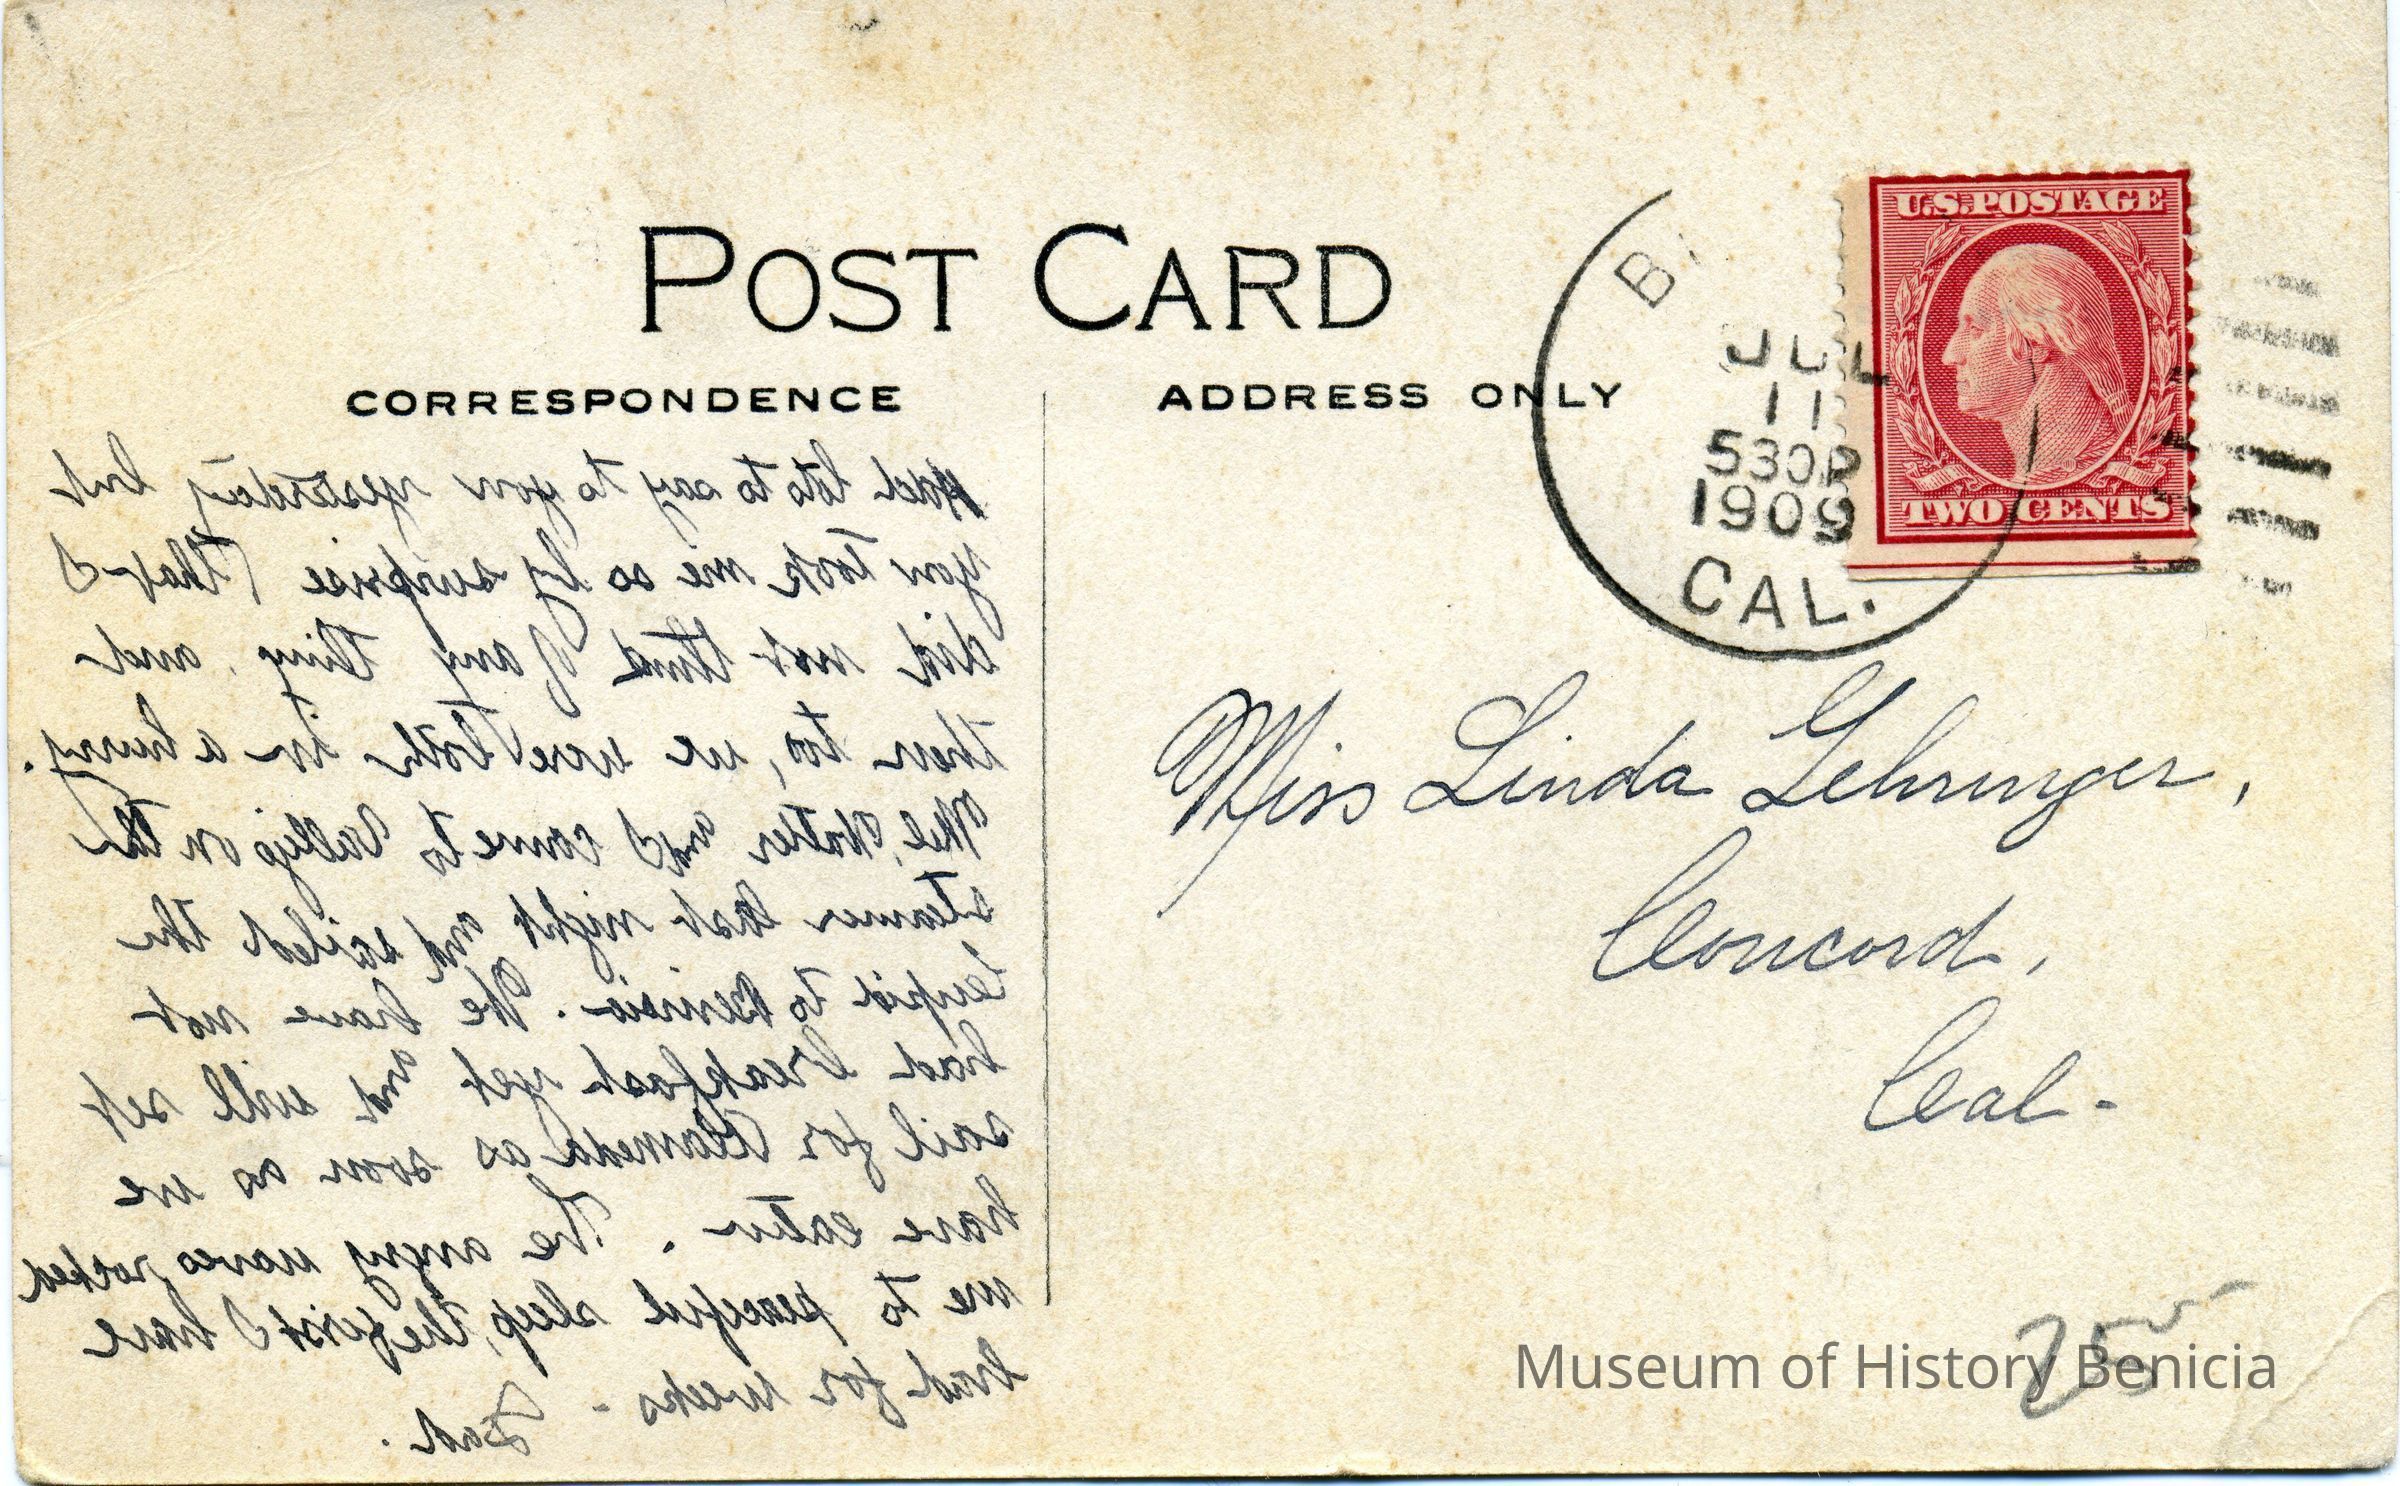 POST CARD
CORRESPONDENCE
ADDRESS ONLY
U.S. POSTAGE
TWO CENTS
B
JUL
11
530P
1909
CAL.
Had lots to say to you yesterday but
you took me so by surprise that I
did not think of any thing, and
then, too, we were both in a hurry.
Mel, Walter and I came to Vallejo on the
steamer last night and sailed the
to Benicia. We have not
had breakfast yet and will set
sail for Alameda as soon as we
have eaten. The angry waves rocked
me to peaceful sleep, the first I have
had for weeks -
Miss Linda Gehringer,
Concord,
Cal-
25
Museum of History Benicia